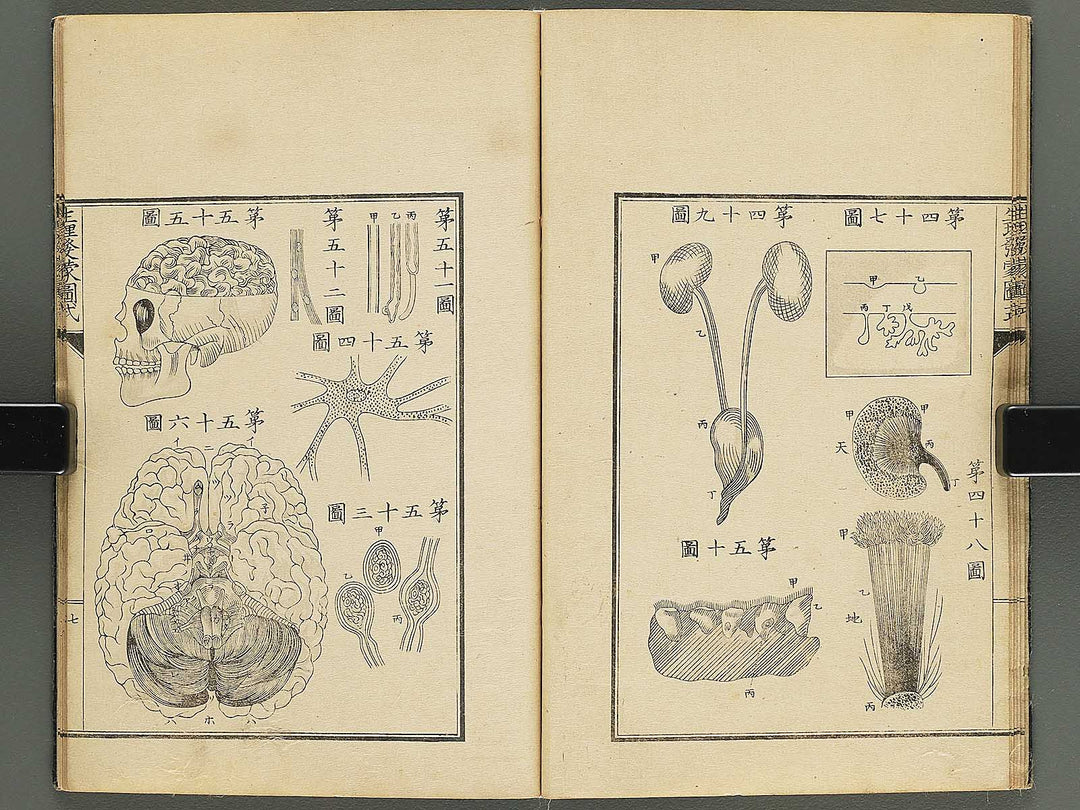 生理發蒙圖式
第四十七圖
甲
乙
丙
丁
戊
第四十八圖
天
甲
甲
丙
丁
地
甲
乙
丙
第四十九圖
甲
乙
丙
丁
第五十圖
甲
乙
丙
第五十一圖
甲
乙
丙
第五十二圖
第五十三圖
甲
乙
丙
第五十四圖
第五十五圖
第五十六圖
イ
ニ
イ
ツ
ツ
子
ラ
ロ
井
ハ
ホ
ハ
生理發蒙圖式
七